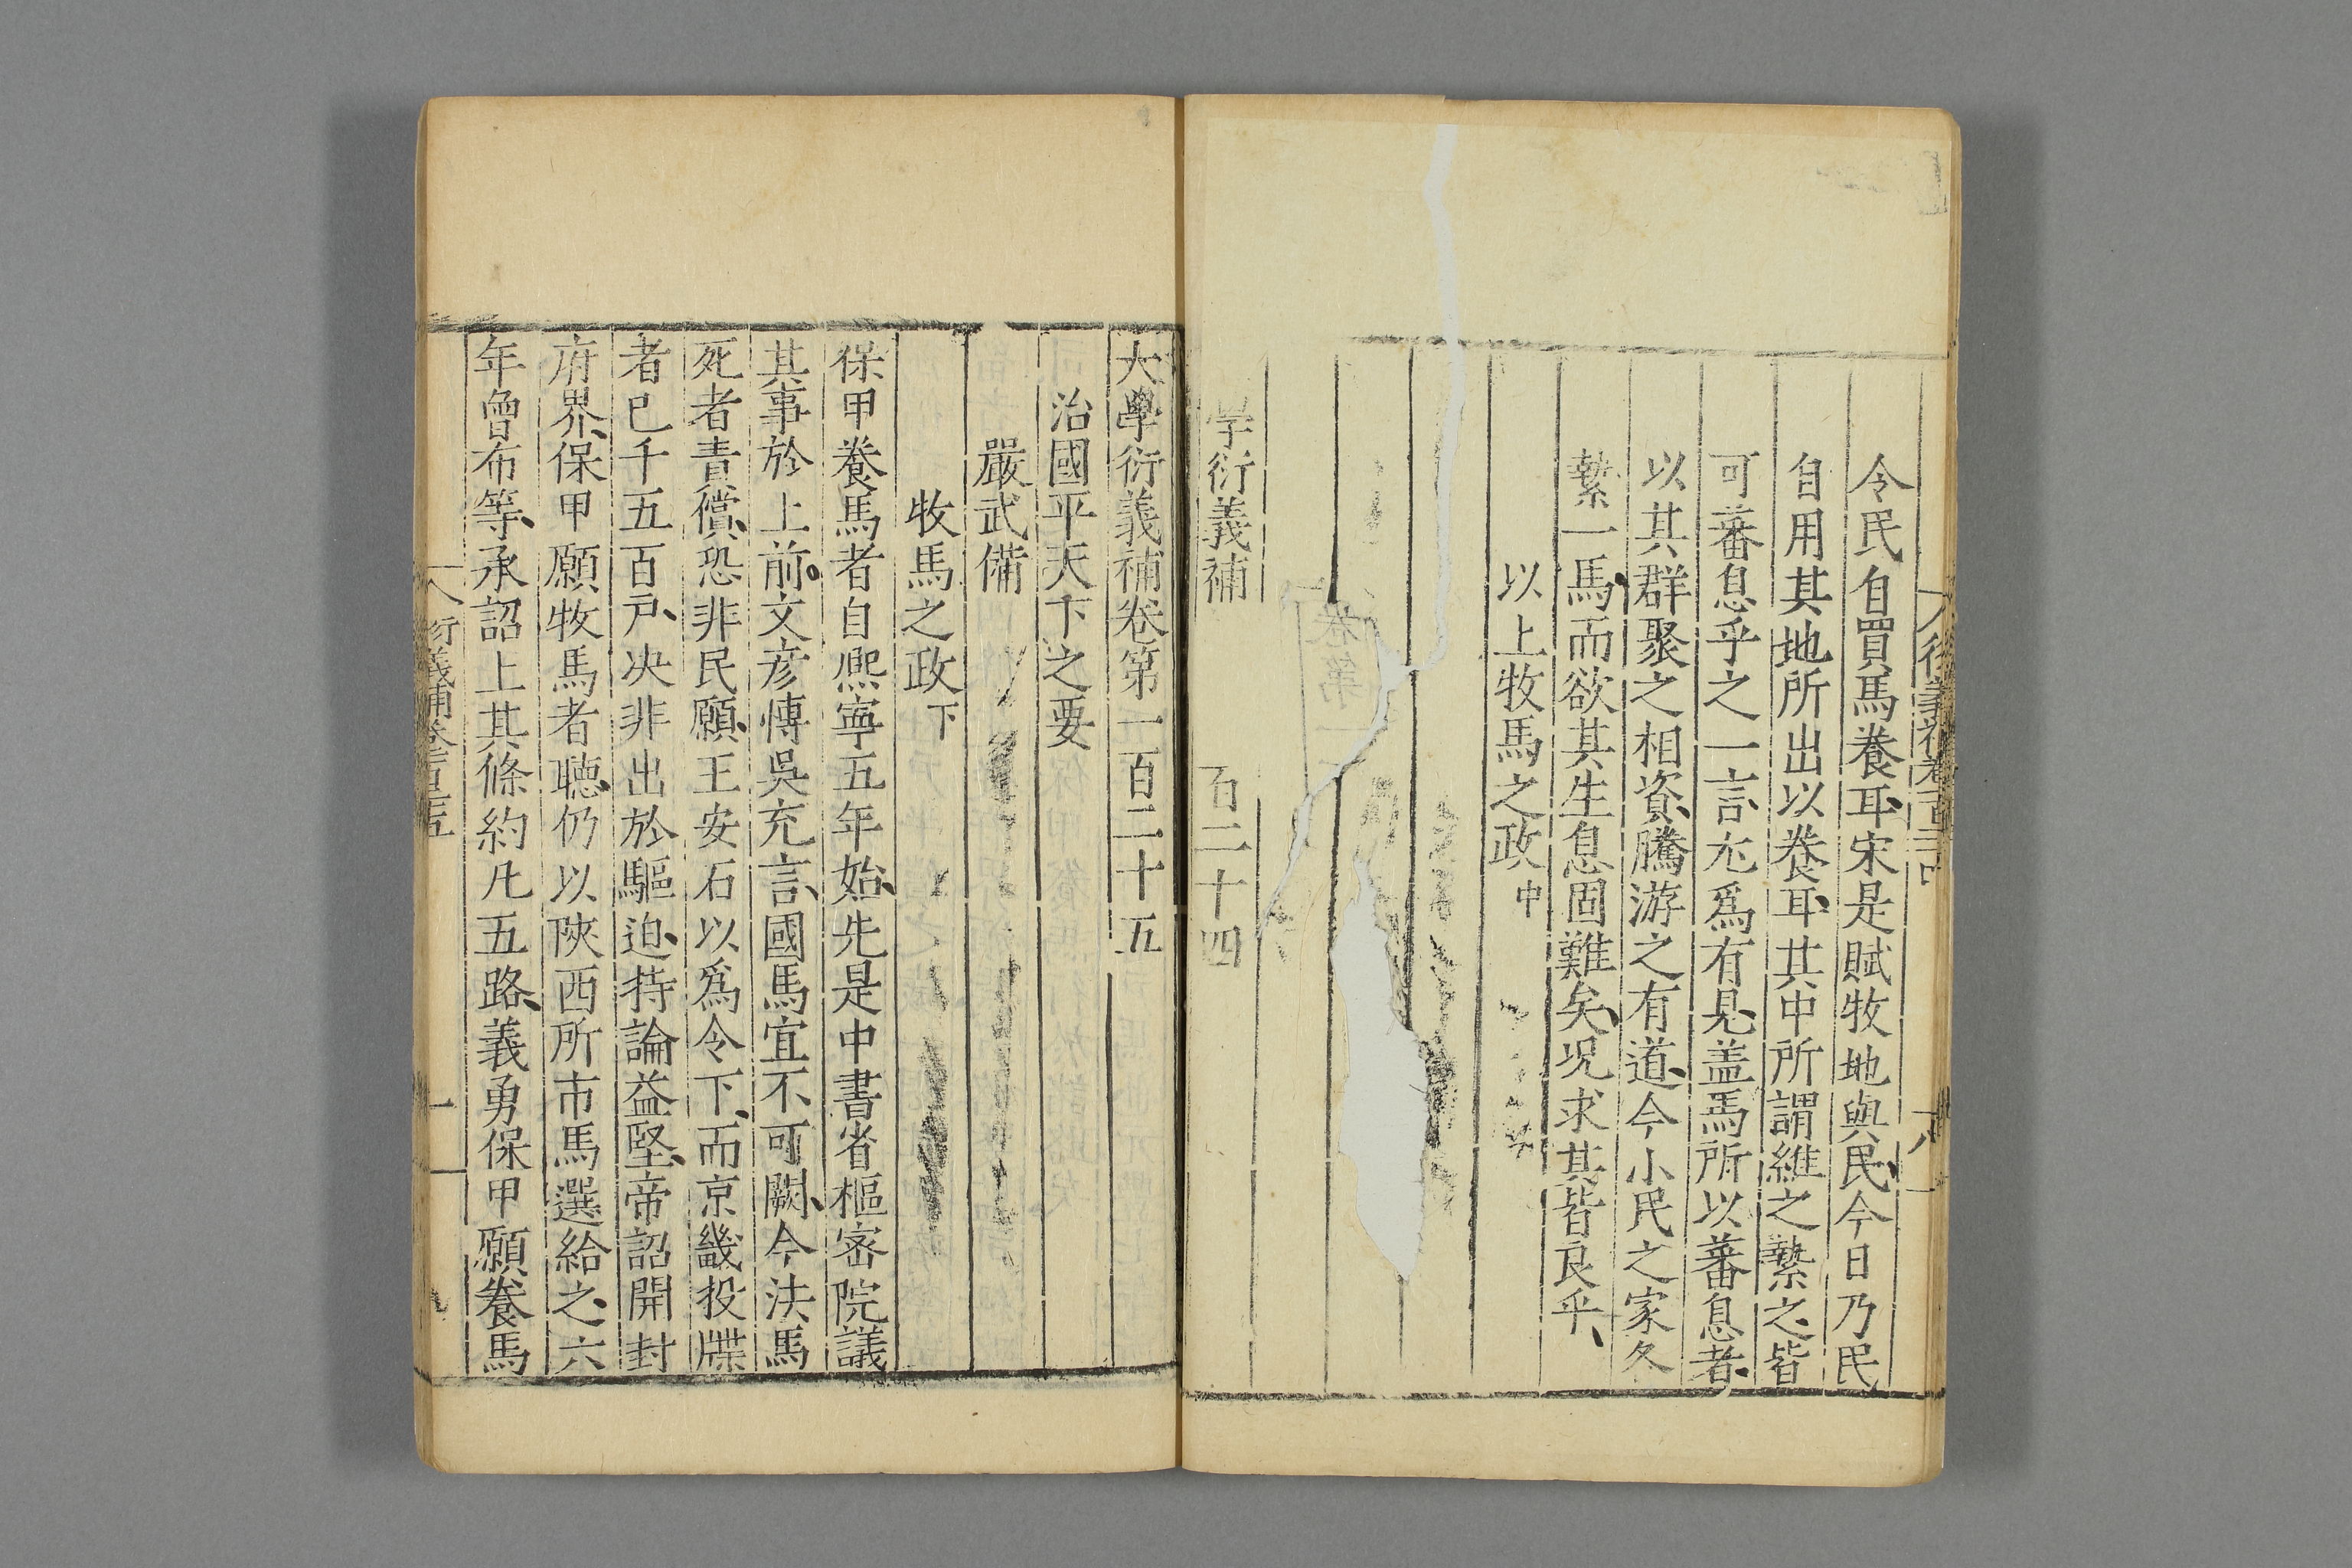 令民自買馬養耳宋是賦牧地與民今日乃民
自用其地所出以養耳其中所謂維之縶之皆
可蕃息乎之一言尤爲有見盖馬所以蕃息者
以其群聚之相資騰游之有道今小民之家各
縶一馬而欲其生息固難矣况求其皆良乎
以上牧馬之政中
卷第一
学衍義補
百二十四
大學衍義補卷第一百二十五
治國平天下之要
嚴武備
牧馬之政下
保甲養馬者自熈寧五年始先是中書省樞密院議
其事於上前文彦博吳充言國馬宜不可闕今法馬
死者責償恐非民願王安石以爲令下而京畿投牒
者巳千五百戸决非出於驅迫持論益堅帝詔開封
府界保甲願牧馬者聽仍以陜西所市馬選給之六
年曾布等承詔上其條約凡五路義勇保甲願養馬
衍義補卷一百二十五
一